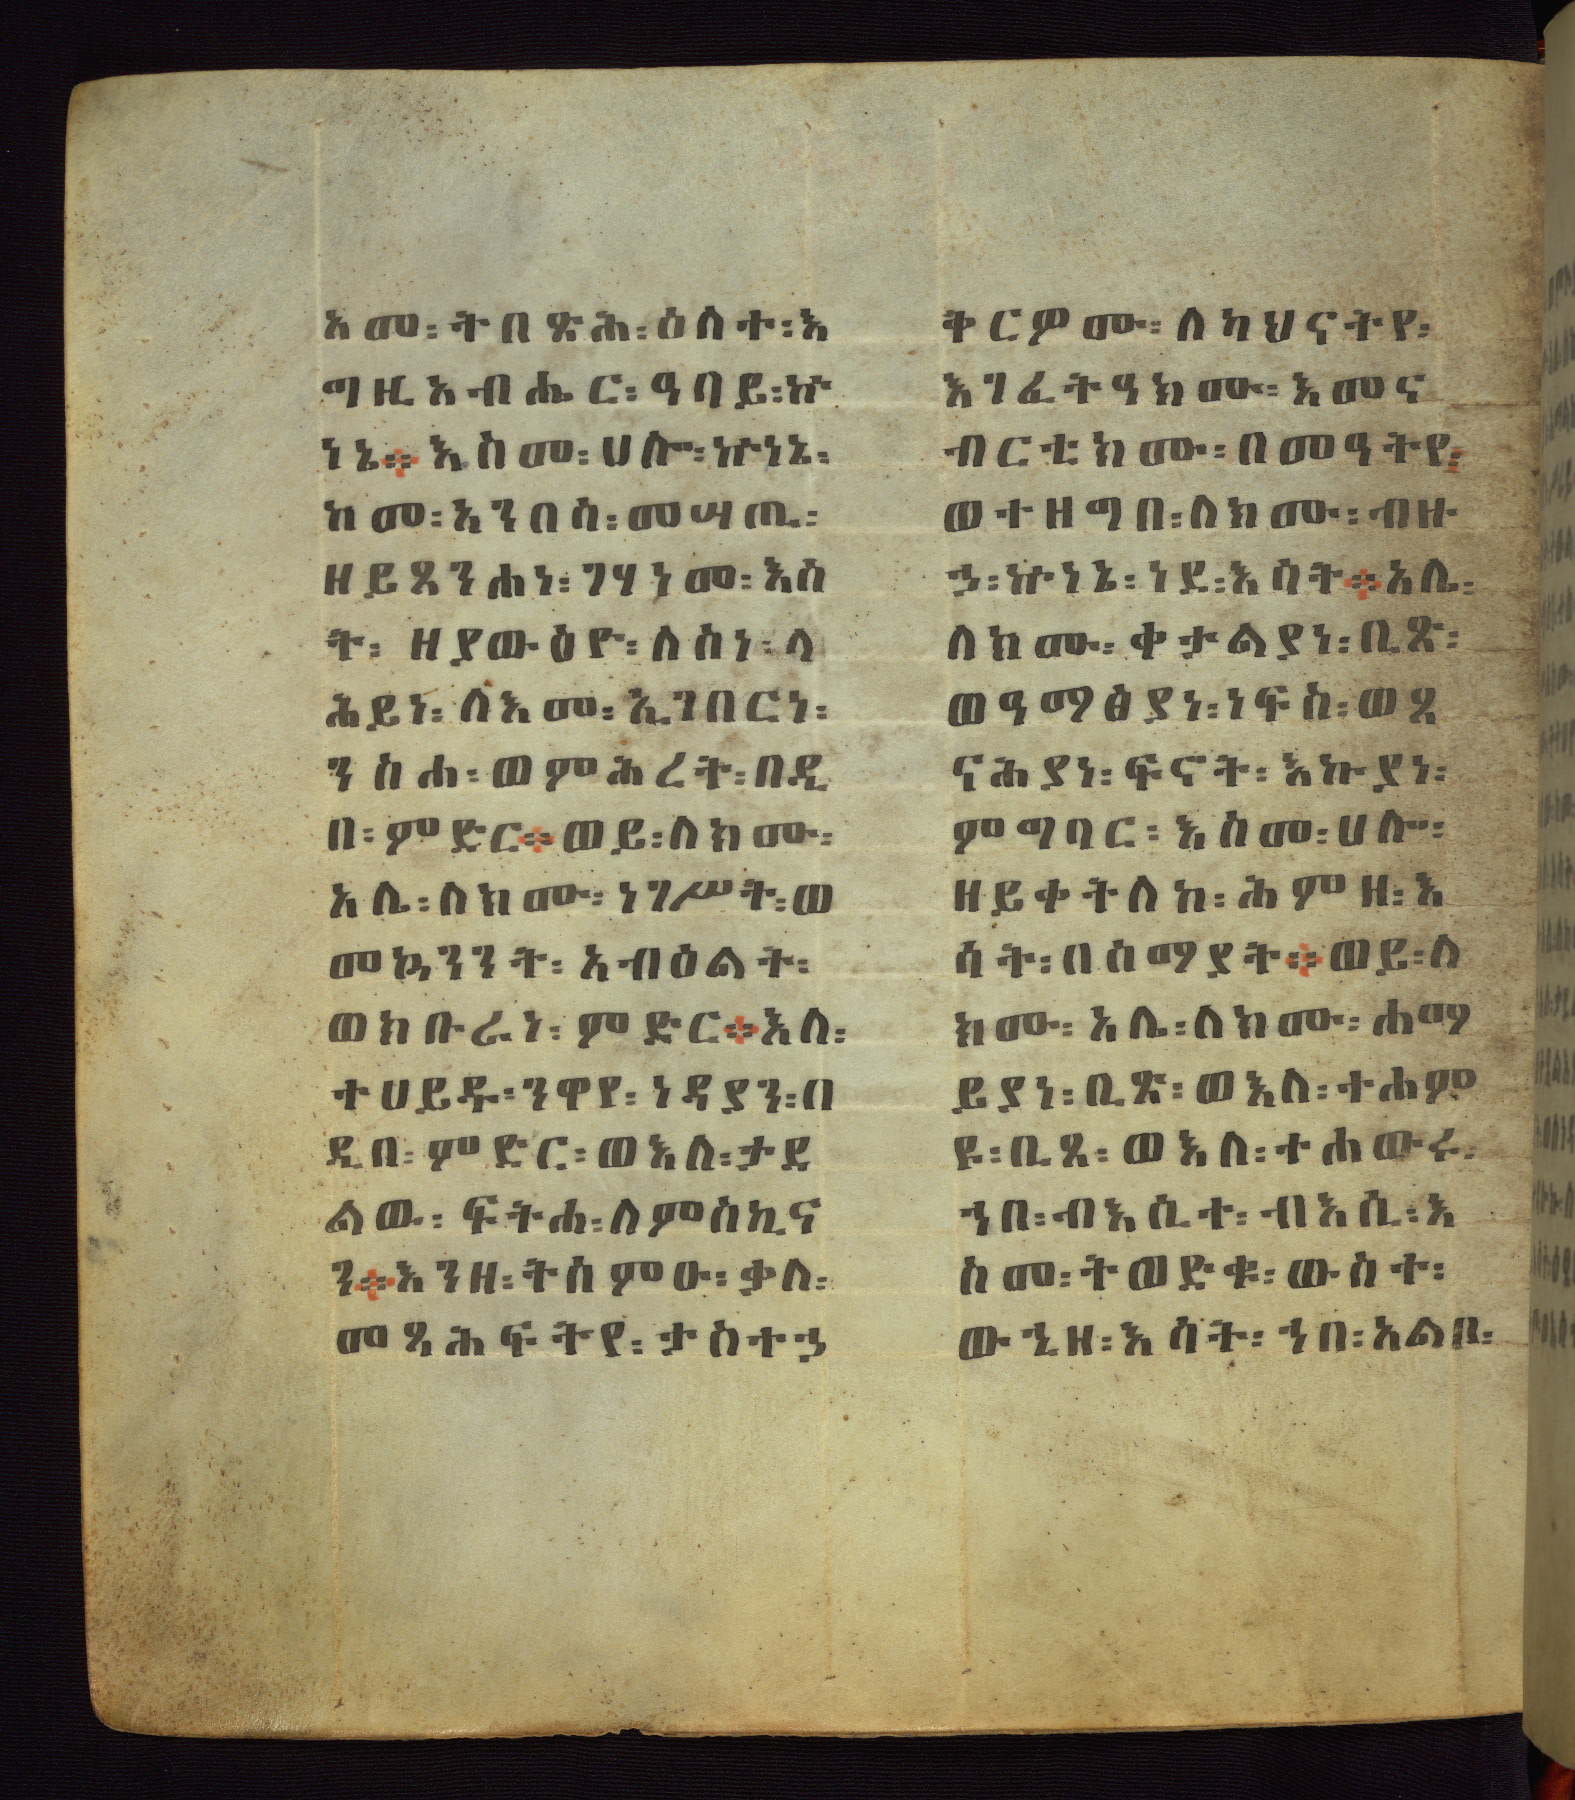 አመ፡ትበጽሕ፡ዕለተ፡እ
ግዚአብሔር፡ዓባይ፡ኵ
ነኔ፨እስመ፡ሀሎ፡ኵነኔ፡
ከመ፡አንበሳ፡መሣጢ፡
ዘይጸንሐነ፡ገሃነመ፡እሳ
ት፡ ዘያውዕዮ፡ለስነ፡ላ
ሕይነ፡ለእመ፡ኢገበርነ፡
ንስሐ፡ወምሕረት፡በዲ
በ፡ምድር፨ወይ፡ለክሙ፡
አሌ፡ለክሙ፡ነገሥት፡ወ
መኳንንት፡አብዕልት፡
ወክቡራነ፡ምድር፨እለ፡
ተሀይዱ፡ንዋየ፡ነዳያን፡በ
ዲበ፡ምድር፡ወእለ፡ታደ
ልው፡ፍትሐ፡ለምስኪና
ን፨እንዘ፡ትሰምዑ፡ቃለ፡
መጻሕፍትየ፡ታስተኃ
ቅርዎሙ፡ለካህናትየ፡
እገፈትዓክሙ፡እመና
ብርቲክሙ፡በመዓትየ፡
ወተዘግበ፡ለክሙ፡ብዙ
ኃ፡ኵነኔ፡ነደ፡እሳት፨አሌ፡
ለክሙ፡ቀታልያነ፡ቢጽ፡
ወዓማፅያነ፡ነፍስ፡ወጸ
ናሕያነ፡ፍኖት፡እኩያነ፡
ምግባር፡እስመ፡ሀሎ፡
ዘይቀትለከ፡ሕምዘ፡እ
ሳት፡በሰማያት፨ወይ፡ለ
ክሙ፡አሌ፡ለክሙ፡ሐማ
ይያነ፡ቢጽ፡ወእለ፡ተሐም
ዩ፡ቢጸ፡ወእለ፡ተሐውሩ፡
ኀበ፡ብእሲተ፡ብእሲ፡እ
ስመ፡ትወድቁ፡ውስተ፡
ውኂዘ፡እሳት፡ኀበ፡አልቦ፡